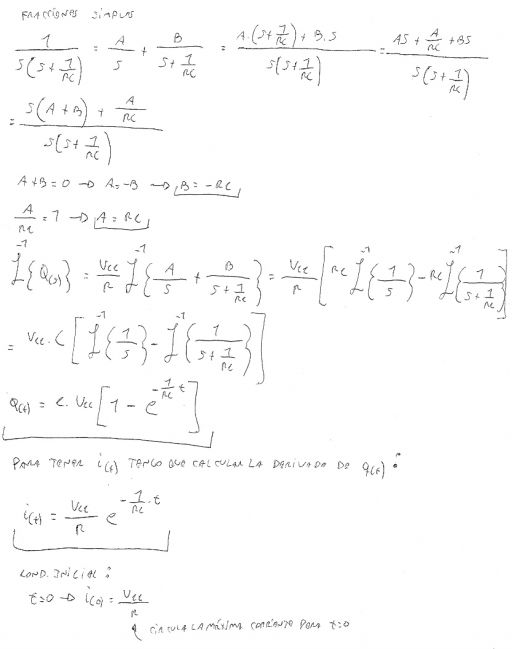 FRACCIONES SIMPLES
1/(S(S+1/RC)) = A/S + B/(S+1/RC) = (A.(S+1/RC) + B.S)/(S(S+1/RC)) = (AS + A/RC + BS)/(S(S+1/RC))
= (S(A+B) + A/RC)/(S(S+1/RC))
A+B=0 → A=-B → B=-RC
A/RC = 1 → A=RC
ℒ⁻¹{Q(s)} = Vcc/R ℒ⁻¹{A/S + B/(S+1/RC)} = Vcc/R [RC ℒ⁻¹{1/S} - RC ℒ⁻¹{1/(S+1/RC)}]
= Vcc.C [ℒ⁻¹{1/S} - ℒ⁻¹{1/(S+1/RC)}]
Q(t) = C.Vcc [1 - e^(-1/RC t)]
PARA TENER i(t) TENGO QUE CALCULAR LA DERIVADA DE q(t):
i(t) = Vcc/R e^(-1/RC.t)
COND. INICIAL:
t=0 → i(0) = Vcc/R
CIRCULA LA MÁXIMA CORRIENTE PARA t=0